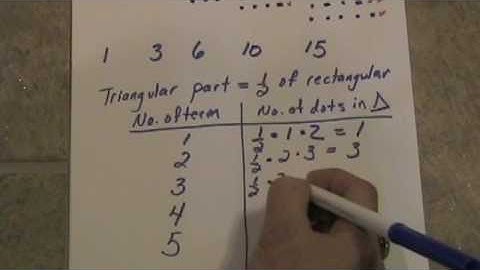 1 3 6 10 15
Triangular part = 1/2 of rectangular
No. of term No. of dots in Δ
1 1/2 • 1 • 2 = 1
2 1/2 • 2 • 3 = 3
3 1/2 •
4
5